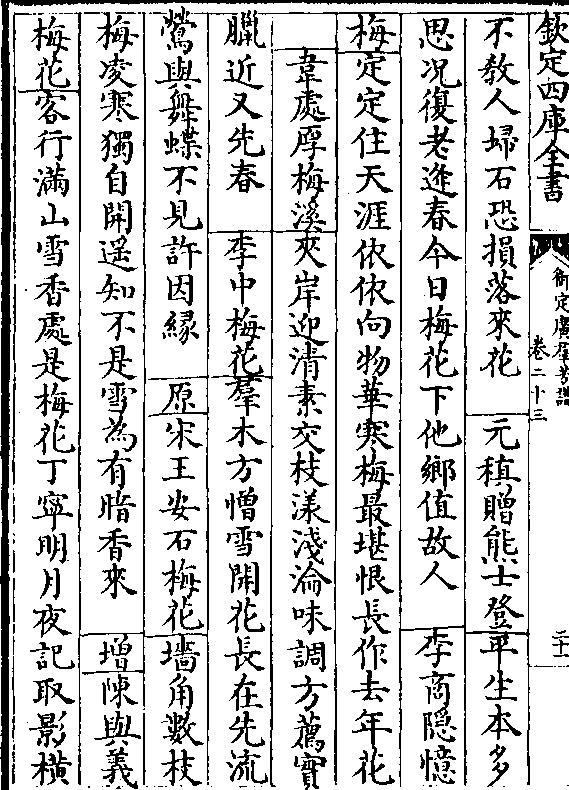 欽定四庫全書
御定廣羣芳譜
卷二十三
二十一
不教人埽石恐損落來花 元稹贈熊士登平生本多
思況復老逢春今日梅花下他鄉值故人 李商隠憶
梅定定住天涯依依向物華寒梅最堪恨長作去年花
韋處厚梅溪夾岸迎清素交枝漾淺淪味調方薦實
臘近又先春 李中梅花羣木方憎雪開花長在先流
鶯與舞蝶不見許因緣 原宋王安石梅花墻角數枝
梅凌寒獨自開遥知不是雪為有暗香來 增陳與義
梅花客行滿山雪香處是梅花丁寧明月夜記取影橫